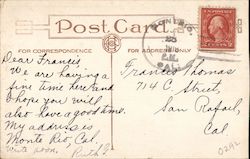 Post Card
FOR CORRESPONDENCE
FOR ADDRESS ONLY
MONTE RIO
CAL.
Dear Frances,
We are having a
fine time here and
I hope you will
also have a good time.
My address is
Monte Rio, Cal.
Write soon,
Ruth
Frances Thomas
714 C. Street,
San Rafael,
Cal.